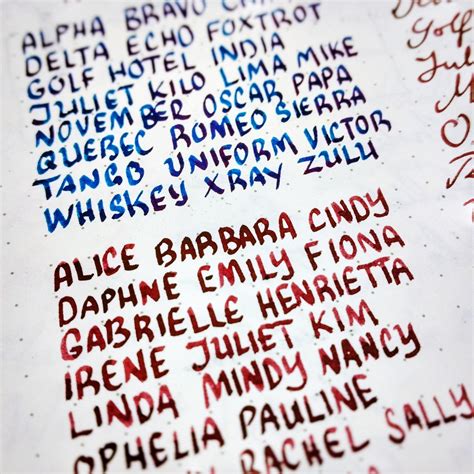 ALPHA BRAVO
DELTA ECHO FOXTROT
GOLF HOTEL INDIA
JULIET KILO LIMA MIKE
NOVEMBER OSCAR PAPA
QUEBEC ROMEO SIERRA
TANGO UNIFORM VICTOR
WHISKEY XRAY ZULU
ALICE BARBARA CINDY
DAPHNE EMILY FIONA
GABRIELLE HENRIETTA
IRENE JULIET KIM
LINDA MINDY NANCY
OPHELIA PAULINE
RACHEL SALLY
Golf